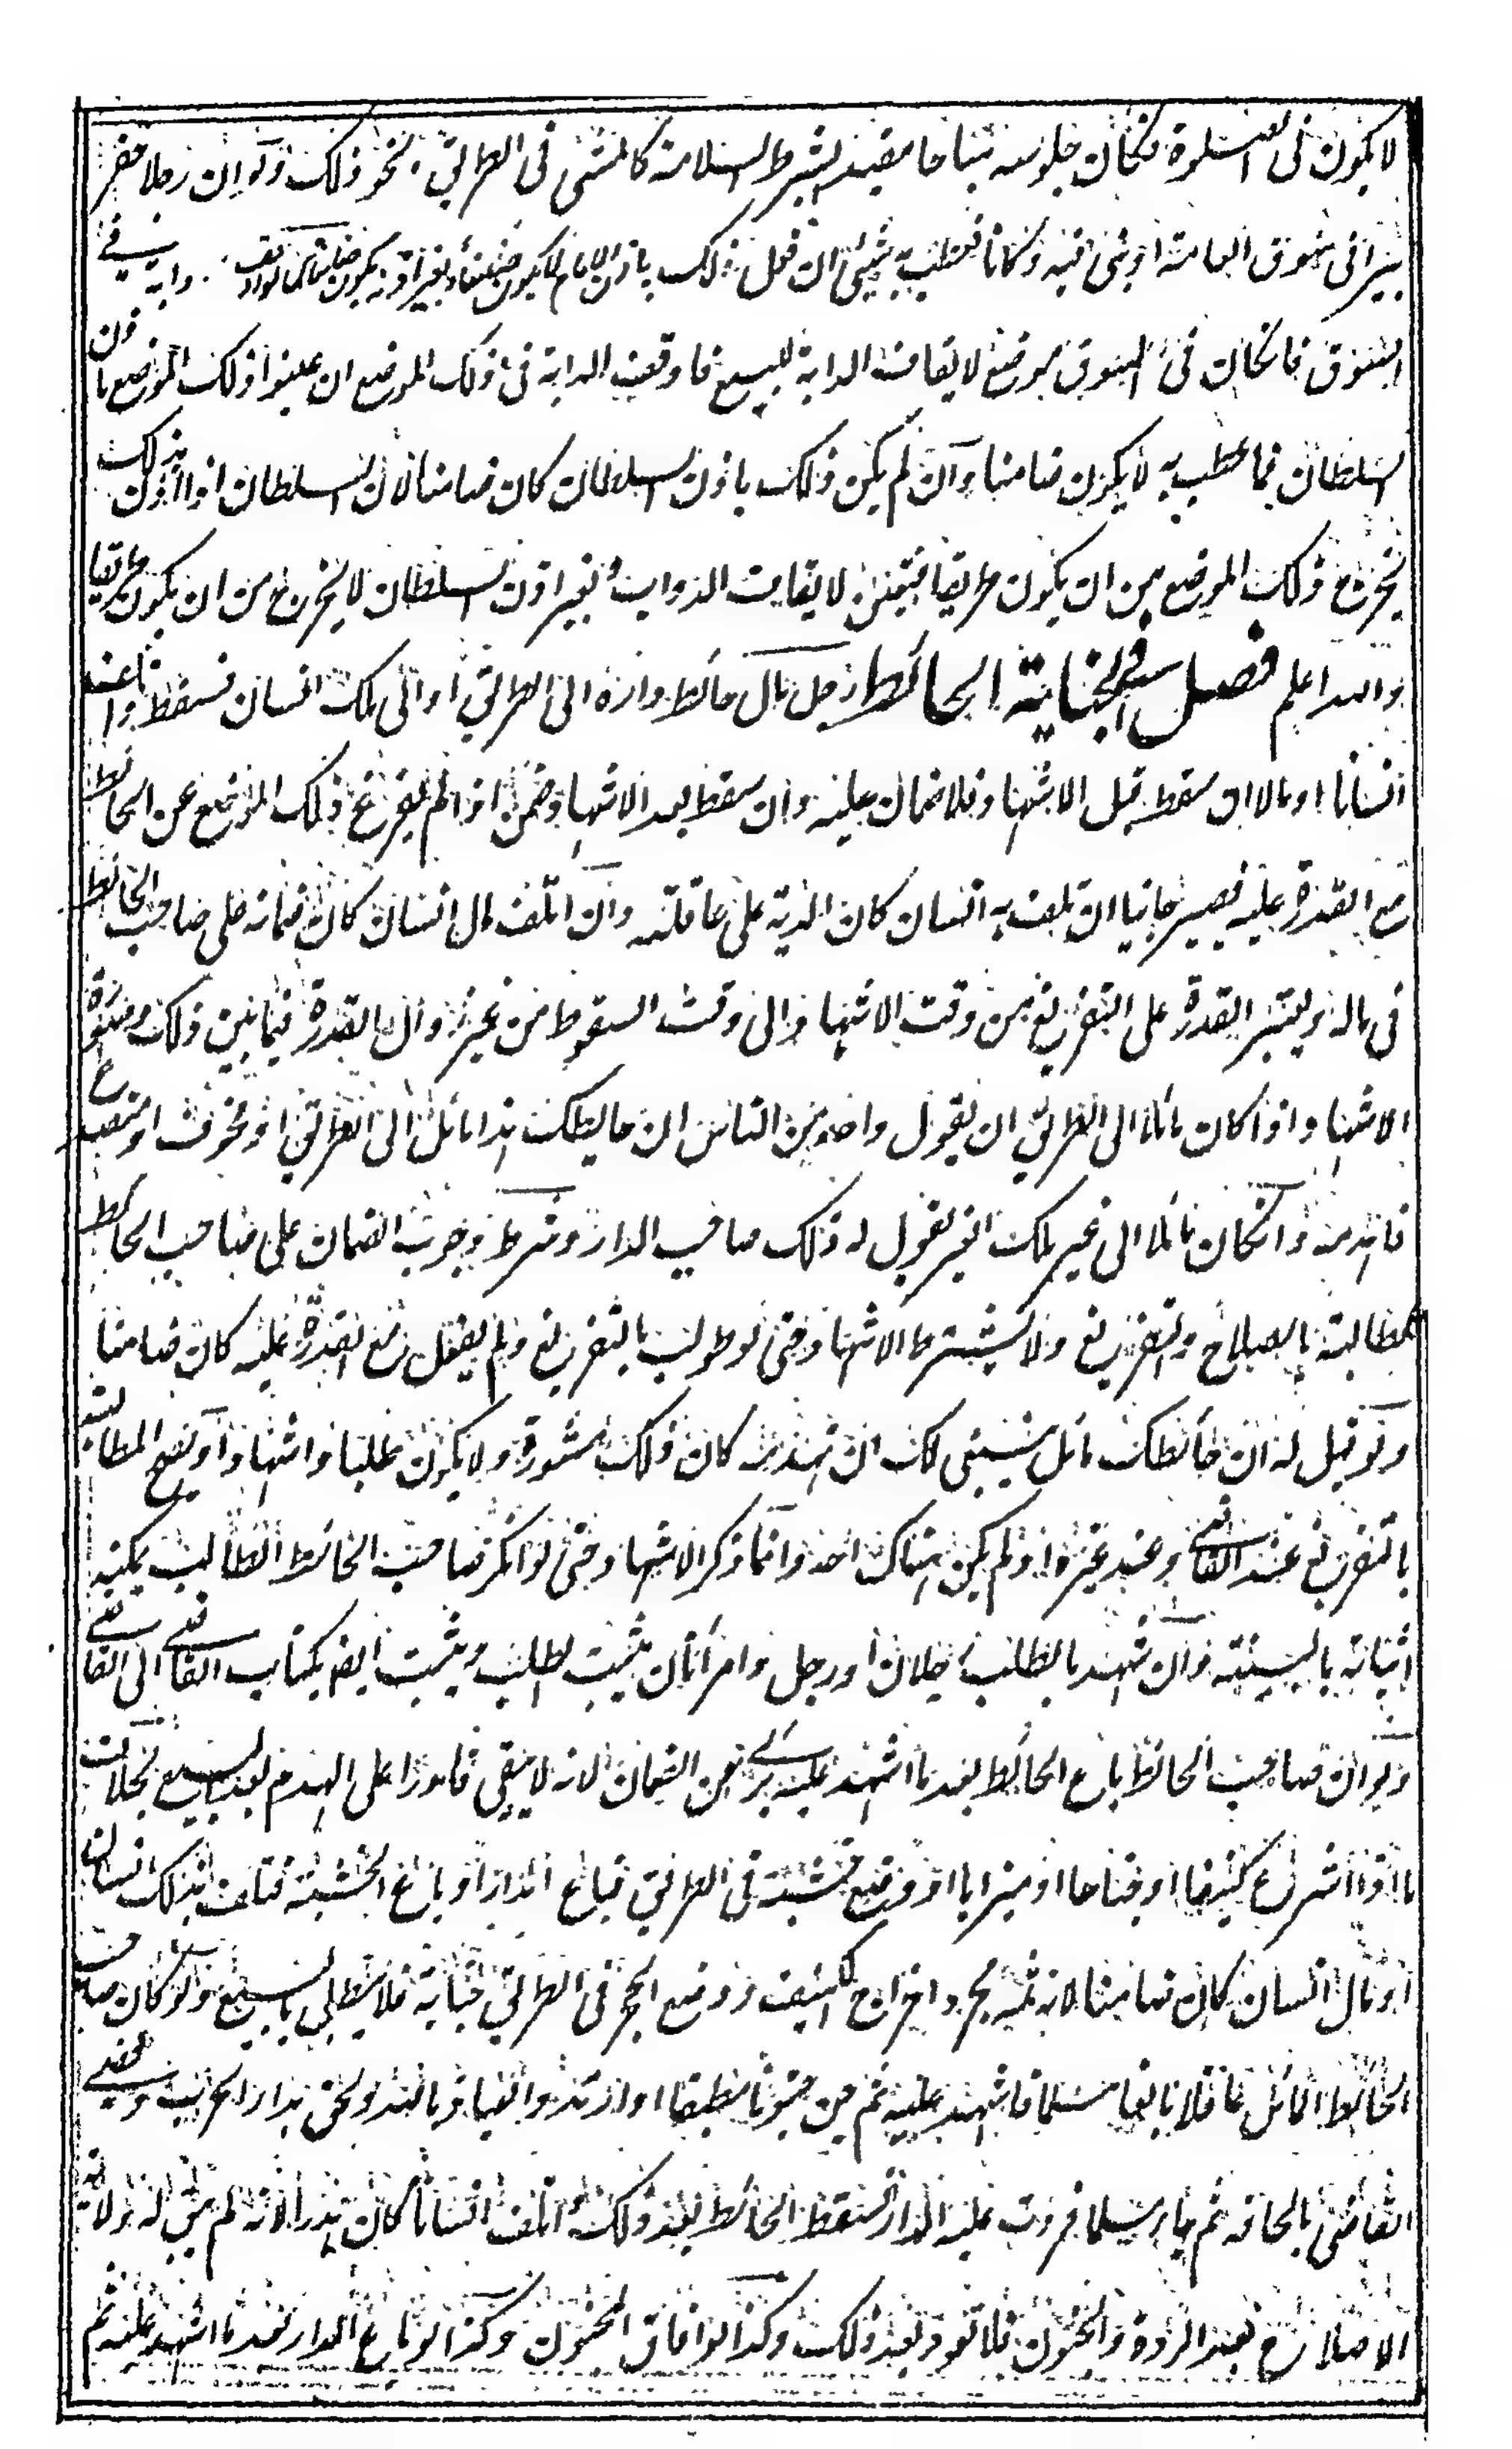 لا يكون فى الصلوة فكان جلوسه مباحا مقيد ابشرط السلامة كالمشى فى الطريق ونحو ذلك ولو ان رجلا حفر
بيرا فى سوق العامة او بنى فيه دكانا فعطب به شيئ ان فعل ذلك باذن الامام لا يكون ضامنا وبغير اذنه يكون ضامنا كما لو اوقف دابة فى
السوق فان كان فى السوق موضع لا يقامت الدابة للبيع فاوقف الدابة فى ذلك الموضع ان عينوا ذلك الموضع باذن
السلطان فما عطب به لا يكون ضامنا وان لم يكن ذلك باذن السلطان كان ضامنا لان السلطان اذا اذن بذلك
يخرج ذلك الموضع من ان يكون طريقا فيتعين لا يقامت الدواب وبغير اذن السلطان لا يخرج من ان يكون طريقا
والله اعلم فصل فى جناية الحائط رجل مال حائط داره الى الطريق او الى ملك انسان فسقط واتلف
انسانا او مالا ان سقط قبل الاشهاد فلا ضمان عليه وان سقط بعد الاشهاد ضمن اذا لم يفرغ ذلك الموضع عن الحائط
مع القدرة عليه فيصير جانيا ان تلف به انسان كان الدية على عاقلته وان اتلف مال انسان كان ضمانه على صاحب الحائط
فى ماله ويعتبر القدرة على التفريغ من وقت الاشهاد الى وقت السقوط من غير زوال القدرة فيما بين ذلك وصورة
الاشهاد اذا كان مائلا الى الطريق ان يقول واحد من الناس ان حائطك هذا مائل الى الطريق او مخوف او متصدع
فاهدمه وان كان مائلا الى غير ملك الغير يقول له ذلك صاحب الدار وشرط وجوب الضمان على صاحب الحائط
المطالبة بالاصلاح والتفريغ ولا يشترط الاشهاد حتى لو طولب بالتفريغ ولم يفعل مع القدرة عليه كان ضامنا
ولو قيل له ان حائطك مائل ينبغى لك ان تهدمه كان ذلك مشورة ولا يكون طلبا واشهادا ويصح المطالبة
بالتفريغ عند القاضى وعند غيره اذ لم يكن هناك احد وانما ذكر الاشهاد حتى لو انكر صاحب الحائط الطلب يمكنه
اثباته بالبينة وان شهد بالطلب رجلان او رجل وامرأتان يثبت الطلب ويثبت ايضا بكتاب القاضى الى القاضى
ولو ان صاحب الحائط باع الحائط بعد ما اشهد عليه برئ عن الضمان لانه لا يبقى قادرا على الهدم بعد البيع بخلاف
ما اذا اشرع كنيفا او جناحا او ميزابا او وضع خشبة فى الطريق فباع الدار او باع الخشبة فتلف بذلك انسان
او مال انسان كان ضامنا لان ثمه مجرد اخراج الكنيف ووضع الحجر فى الطريق جناية فلا يبطل بالبيع ولو كان صاحب
الحائط المائل عاقلا بالغا مسلما فاشهد عليه ثم جن جنونا مطبقا او ارتد والعياذ بالله ولحق بدار الحرب وقضى
القاضى بالحاقه ثم جاء مسلما فردت عليه الدار فسقط الحائط بعد ذلك واتلف انسانا كان هدرا لانه لم يبق له ولاية
الاصلاح بعد الردة والجنون فلا تعود بعد ذلك وكذا لو افاق المجنون وكذا لو باع الدار بعد ما اشهد عليه ثم